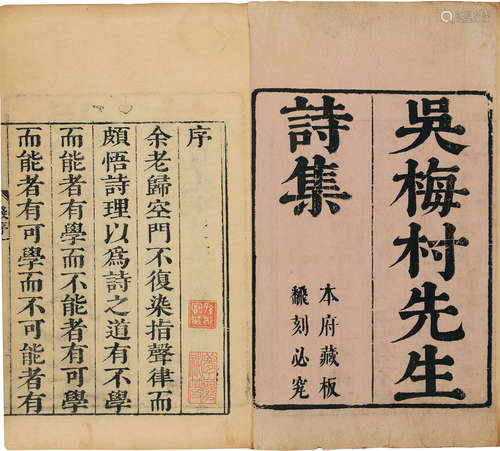 吳梅村先生
詩集
本府藏板
翻刻必究
序
余老歸空門不復染指聲律而
頗悟詩理以爲詩之道有不學
而能者有學而不能者有可學
而能者有可學而不可能者有